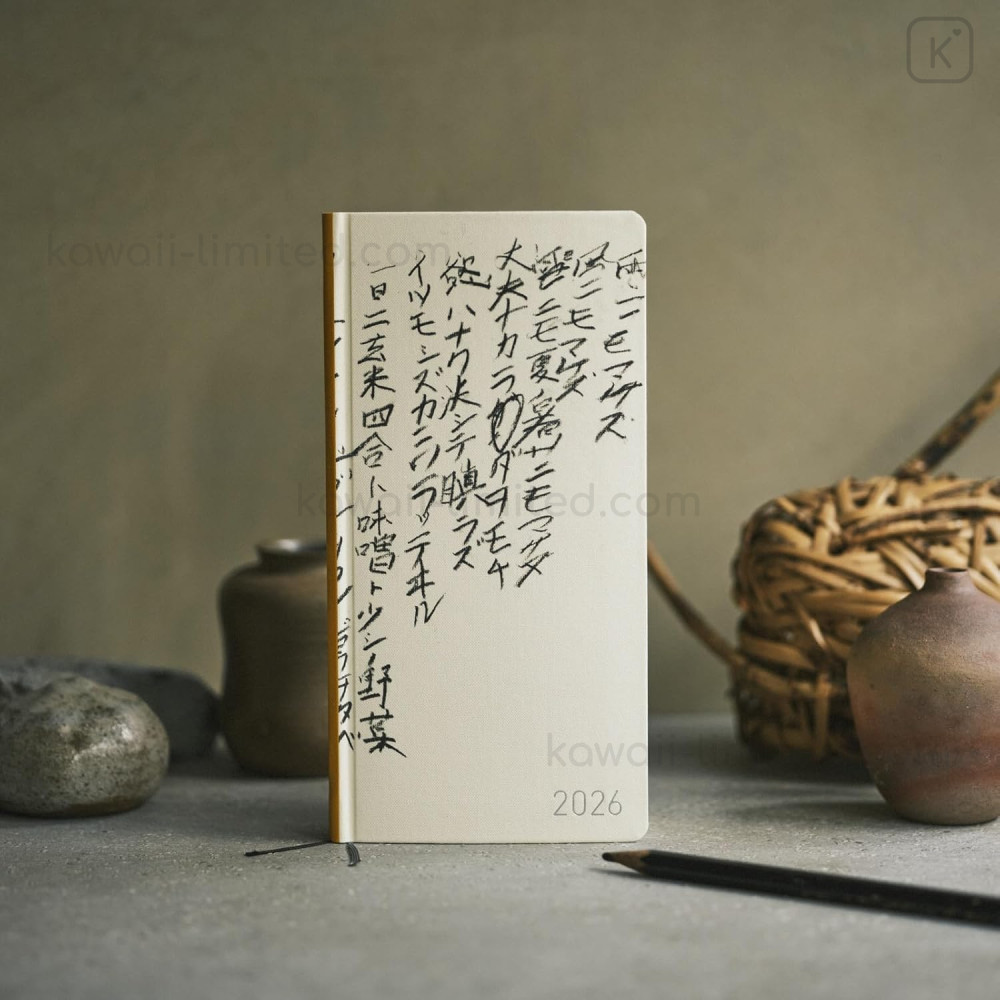 雨ニモマケズ
風ニモマケズ
雪ニモ夏ノ暑サニモマケヌ
丈夫ナカラダヲモチ
慾ハナク決シテ瞋ラズ
イツモシズカニワラッテヰル
一日ニ玄米四合ト味噌ト少シノ野菜
2026
K
kawaii-limited.com
kawaii-limited.com